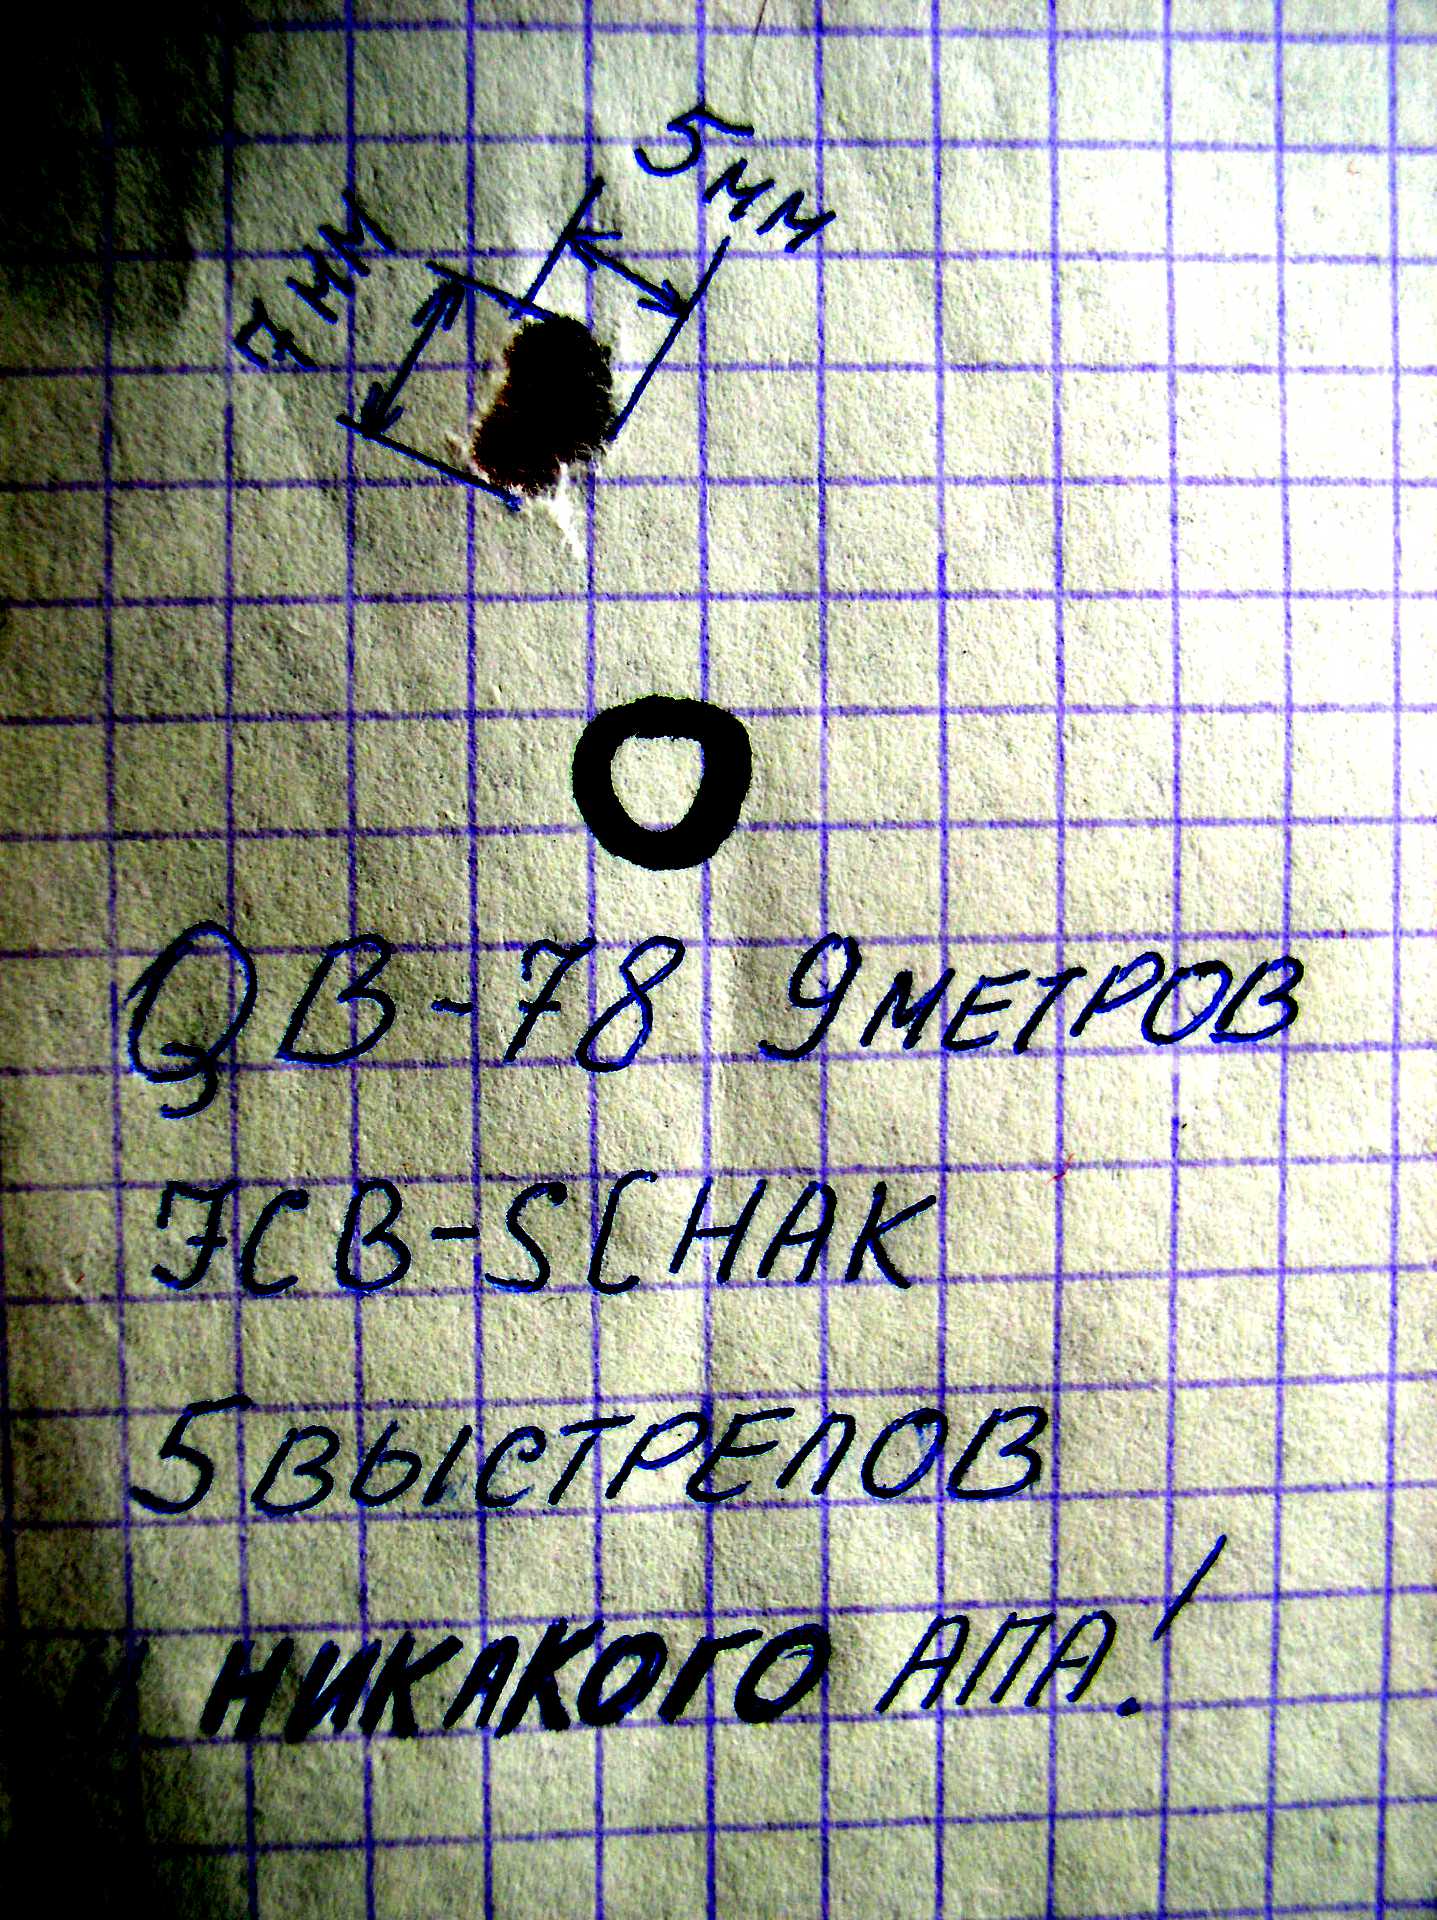 5мм
7мм
QB-78 9МЕТРОВ
JCB-SCHAK
5ВЫСТРЕЛОВ
НИКАКОГО АПА!